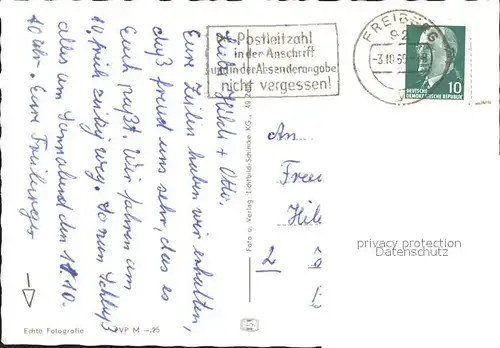 Postleitzahl
in der Anschrift
und in der Absenderangabe
nicht vergessen!
FREIBERG
92
-3.10.69-
DEUTSCHE
DEMOKRATISCHE REPUBLIK
10
Liebe Hilde + Otto.
Eure Zeilen haben wir erhalten,
freud uns sehr, das es
Euch paßt. Wir fahren am
10. früh zeitig weg. So nun Schluß
alles am Sonnabend den 11.10.
10 Uhr. Eure Freiberger
An
Hil
2
Foto u. Verlag: Lichtbild-Schincke KG.
Echte Fotografie
VP M -.25
privacy protection
Datenschutz